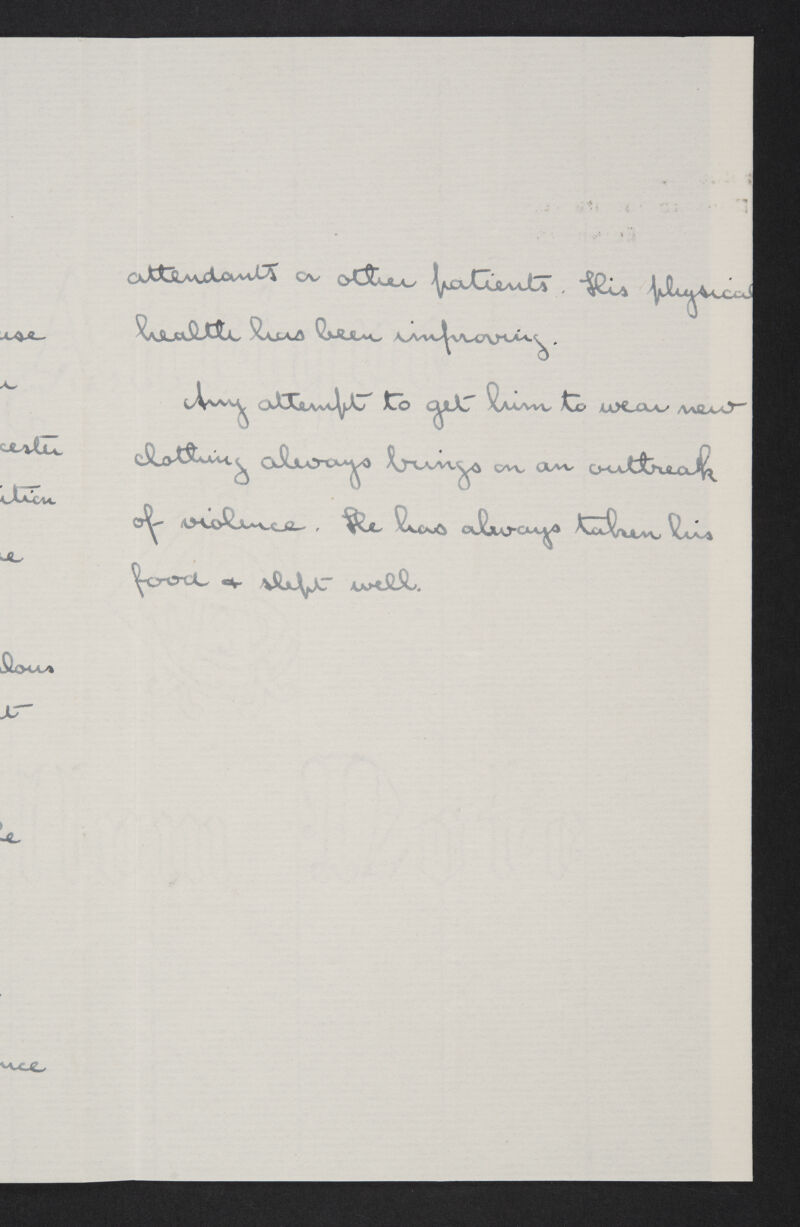 attendants or other patients. His physical
health has been improving.
Any attempt to get him to wear new
clothing always brings on an outbreak
of violence. He has always taken his
food & slept well.